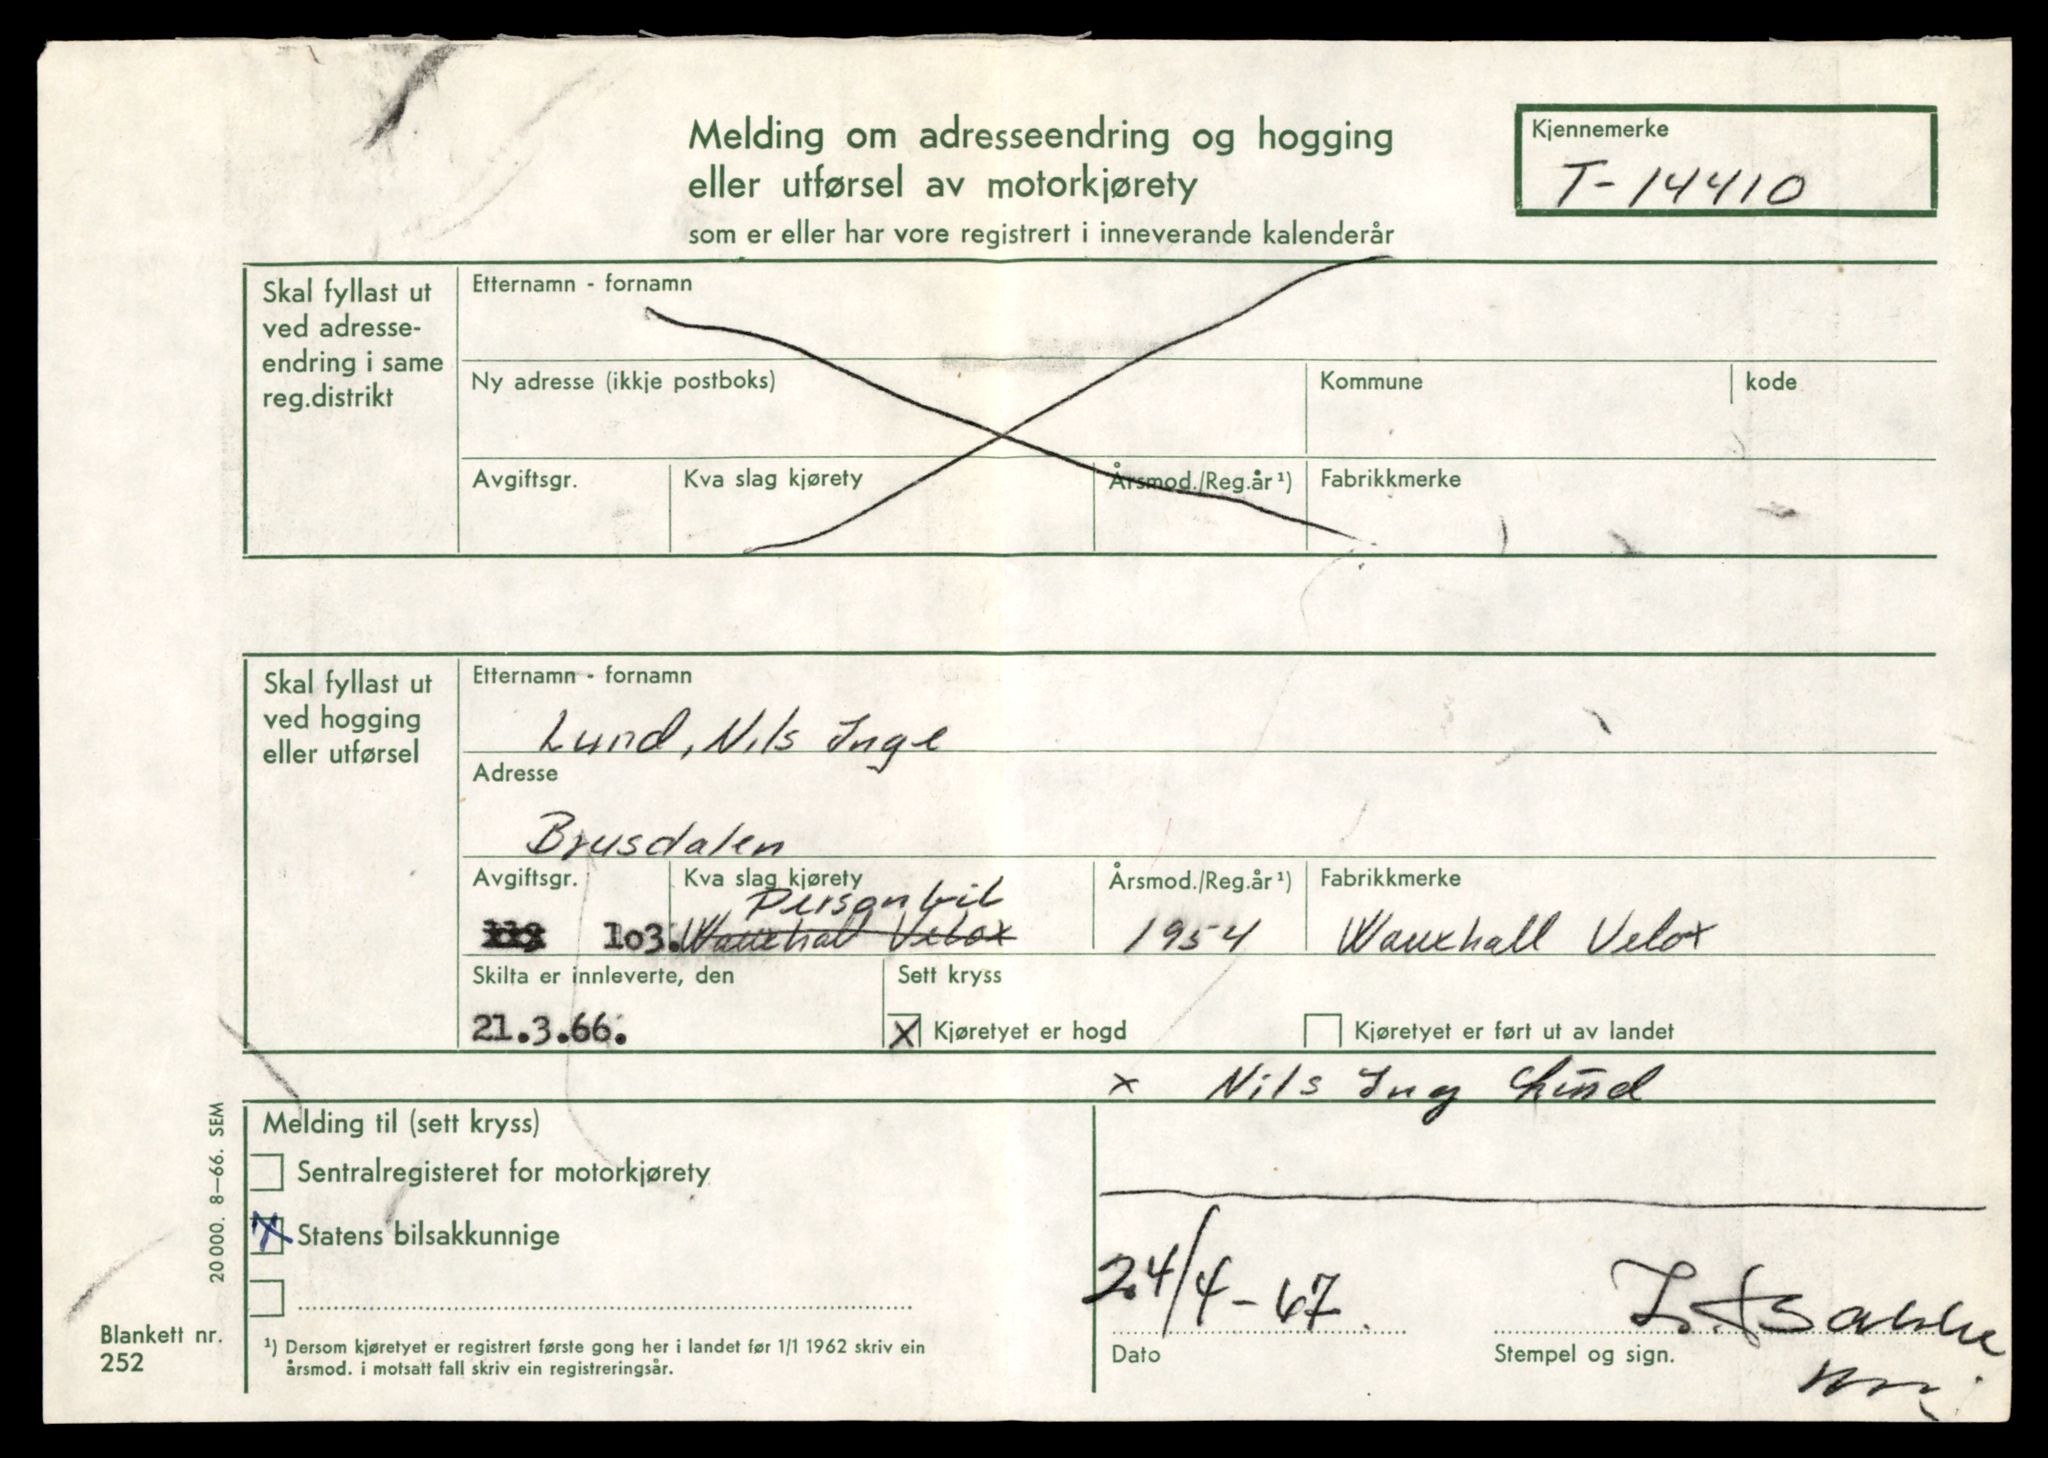 Melding om adresseendring og hogging
eller utførsel av motorkjørety
som er eller har vore registrert i inneverande kalenderår
Kjennemerke
T-14410
Skal fyllast ut
ved adresse-
endring i same
reg.distrikt
Etternamn - fornamn
Ny adresse (ikkje postboks)
Kommune
kode
Avgiftsgr.
Kva slag kjørety
Årsmod./Reg.år¹)
Fabrikkmerke
Skal fyllast ut
ved hogging
eller utførsel
Etternamn - fornamn
Lund, Nils Inge
Adresse
Brusdalen
Avgiftsgr.
Kva slag kjørety
Årsmod./Reg.år¹)
Fabrikkmerke
Personbil
103. Wauxhall Velox
1954
Wauxhall Velox
Skilta er innleverte, den
Sett kryss
21.3.66.
X Kjøretyet er hogd
Kjøretyet er ført ut av landet
x Nils Ing Lund
Melding til (sett kryss)
Sentralregisteret for motorkjørety
X Statens bilsakkunnige
24/4-67.
Dato
Stempel og sign.
¹) Dersom kjøretyet er registrert første gong her i landet før 1/1 1962 skriv ein
årsmod. i motsatt fall skriv ein registreringsår.
Blankett nr.
252
20 000. 8-66. SEM